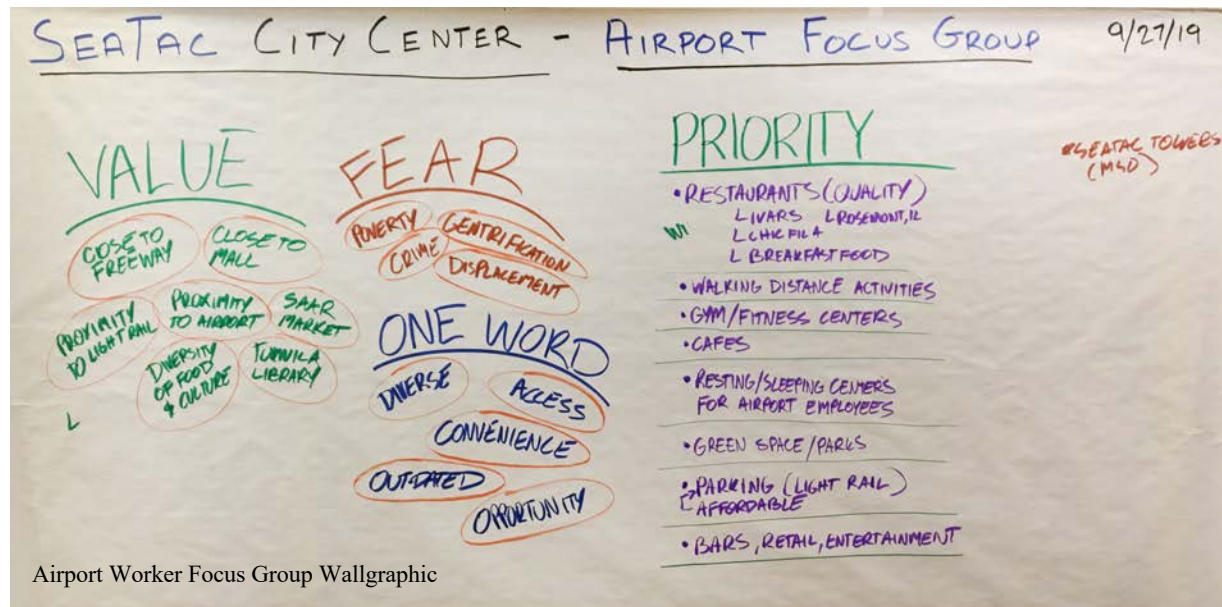 SEATAC CITY CENTER - AIRPORT FOCUS GROUP 9/27/19
VALUE
CLOSE TO
FREEWAY
CLOSE TO
MALL
PROXIMITY
TO LIGHT RAIL
PROXIMITY
TO AIRPORT
SAAR
MARKET
DIVERSITY
OF FOOD
& CULTURE
TUKWILA
LIBRARY
L
FEAR
POVERTY
GENTRIFICATION
CRIME
DISPLACEMENT
ONE WORD
DIVERSE
ACCESS
CONVENIENCE
OUT-DATED
OPPORTUNITY
PRIORITY
• RESTAURANTS (QUALITY)
L IVARS L ROSEMONT, IL
L CHIC FIL A
L BREAKFAST FOOD
• WALKING DISTANCE ACTIVITIES
• GYM/FITNESS CENTERS
• CAFES
• RESTING/SLEEPING CENTERS
FOR AIRPORT EMPLOYEES
• GREEN SPACE/PARKS
• PARKING (LIGHT RAIL)
AFFORDABLE
• BARS, RETAIL, ENTERTAINMENT
SEATAC TOWERS
Airport Worker Focus Group Wallgraphic